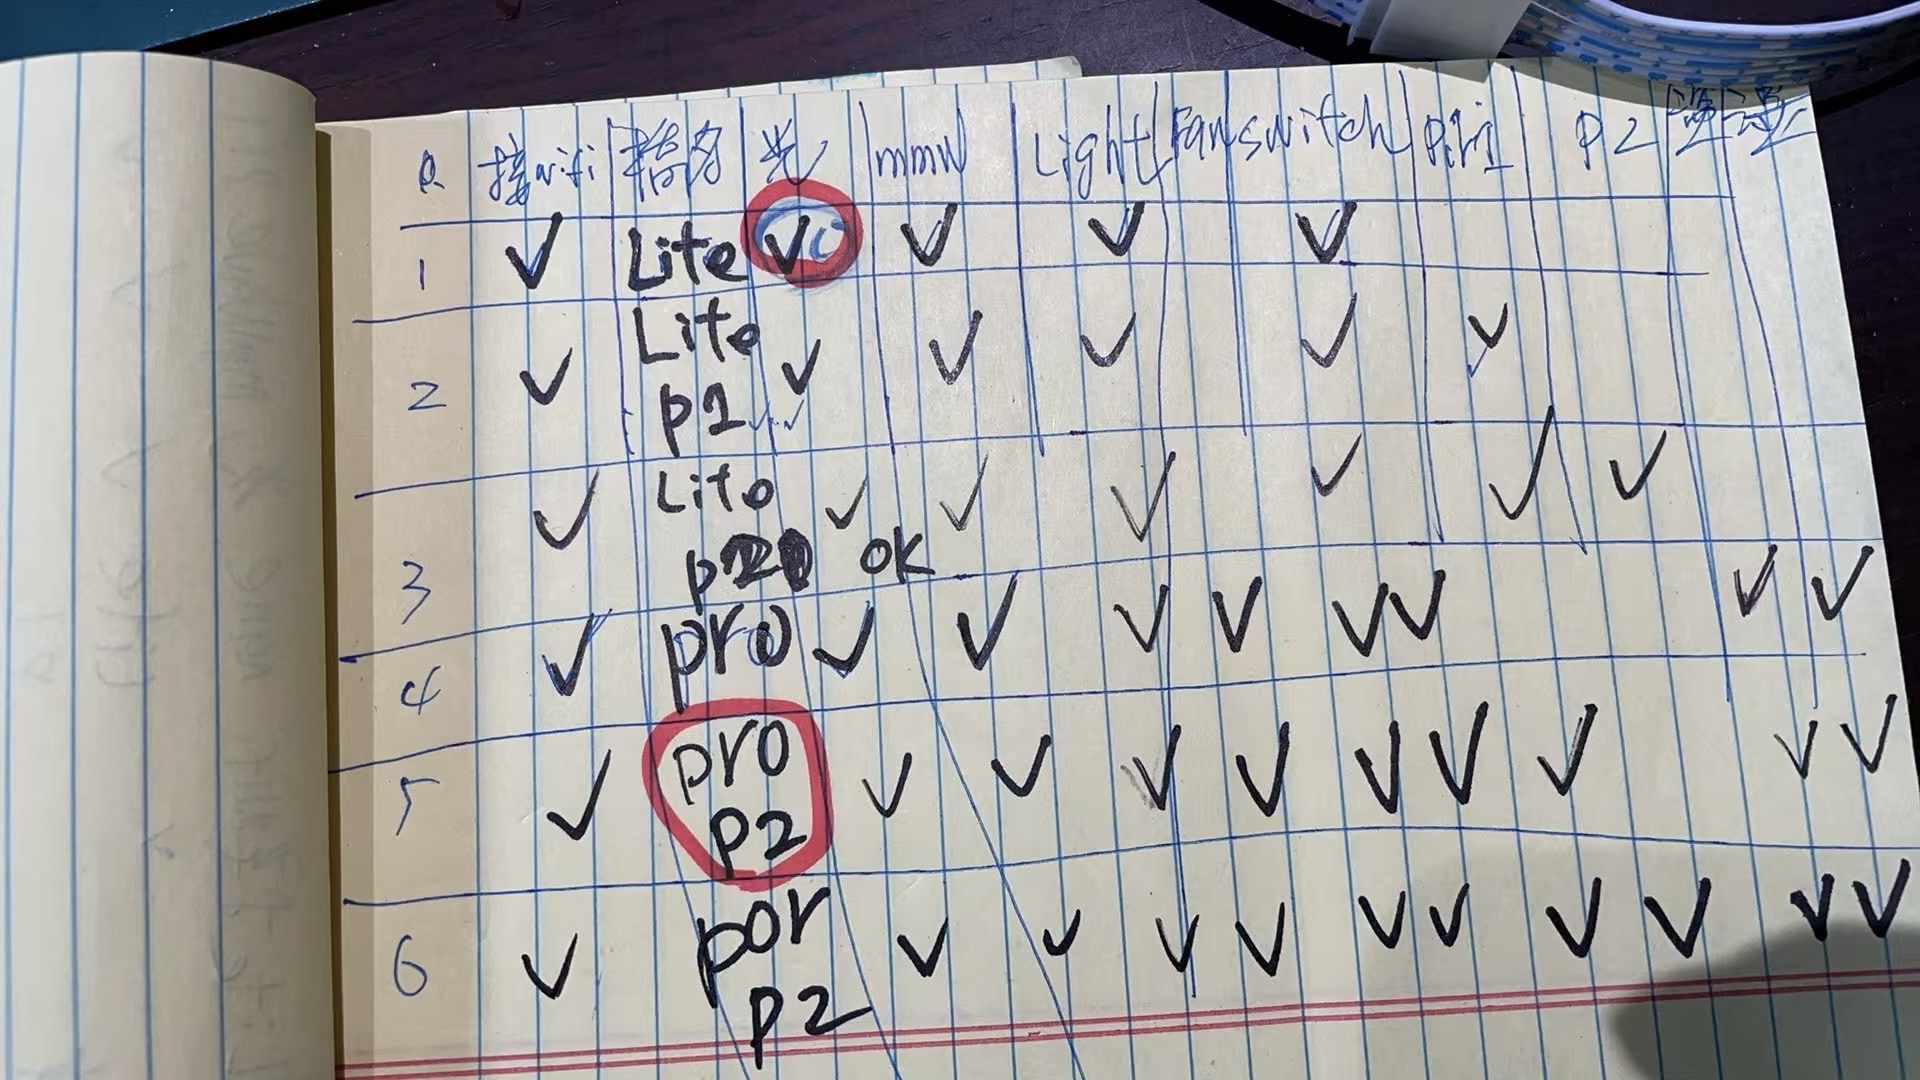 接wifi 指名 光 mmw Light Fan switch P1 P2 温 湿
1 ✓ Lite ✓ ✓ ✓ ✓
2 ✓ Lite ✓ ✓ ✓ ✓ ✓
p1 ✓ ✓
✓ Lite ✓ ✓ ✓ ✓ ✓ ✓
3 p2 OK
4 ✓ pro ✓ ✓ ✓ ✓ ✓ ✓ ✓ ✓
5 ✓ pro ✓ ✓ ✓ ✓ ✓ ✓ ✓ ✓ ✓
p2
6 ✓ por ✓ ✓ ✓ ✓ ✓ ✓ ✓ ✓ ✓ ✓
p2